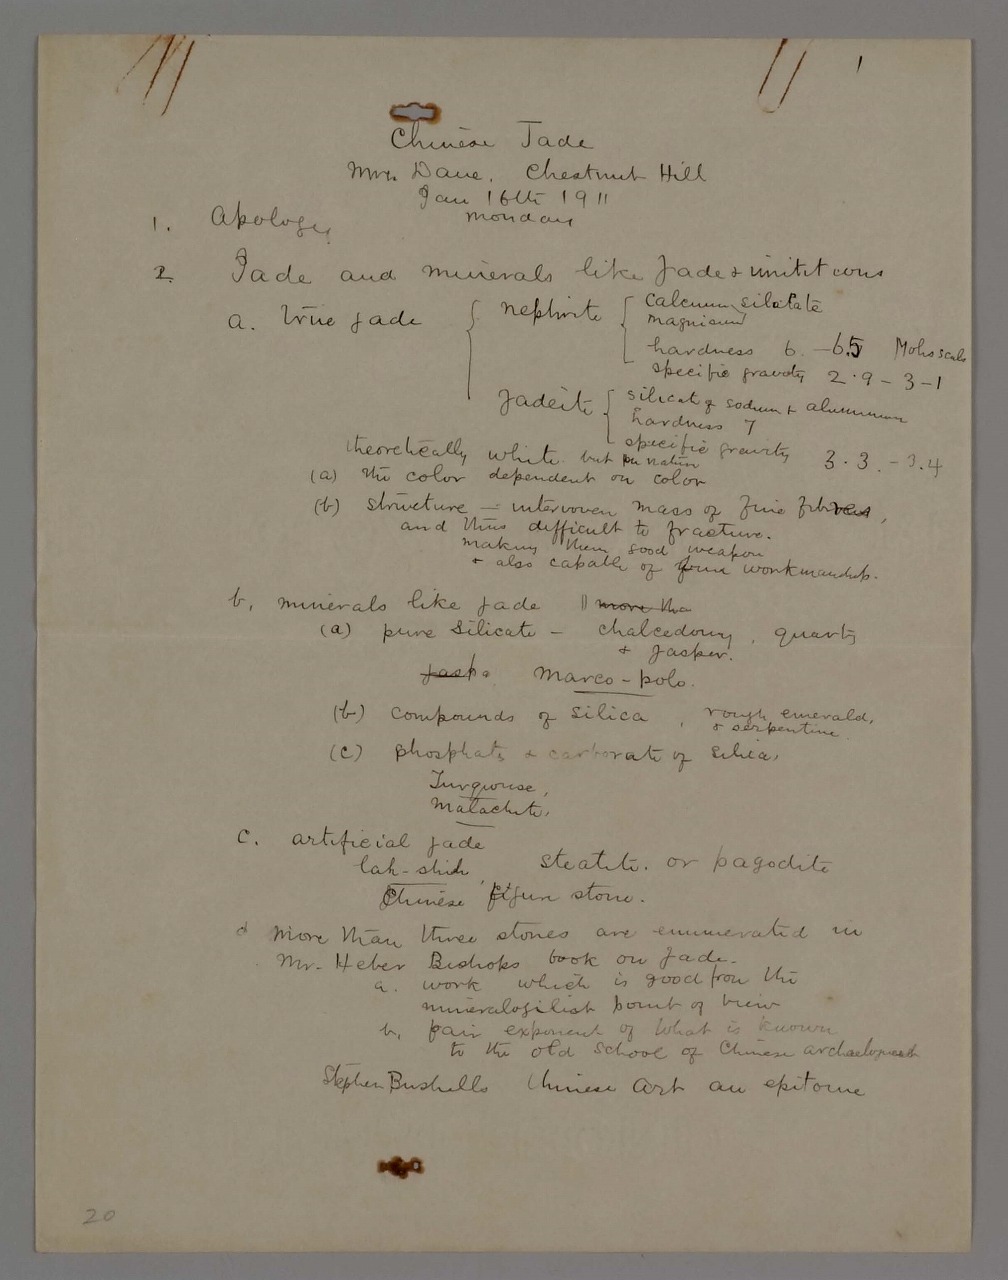 1
Chinese Jade
Mrs. Dane. Chestnut Hill
Jan 16th 1911
monday
1. Apology
2. Jade and minerals like Jade &
a. true jade
nephrite
calcium silatate
magnisium
hardness 6. - 6.5 Mohs scale
specific gravity 2.9 - 3-1
Jadeite
silicate of sodium + aluminum
hardness 7
specific gravity 3.3. - 3.4
theoretically white but in nature
(a) the color dependent on color
(b) structure - interwoven mass of fine fibres,
and thus difficult to fracture.
making them good weapon
+ also capable of fine workmanship.
b. minerals like jade || more tha
(a) pure silicate - chalcedony, quartz
+ Jasper.
Marco-polo.
(b) compounds of silica, rough emerald,
& serpentine
(c) phosphate & carborate of silica,
Turquoise,
Malachite,
c. artificial jade
lah-shih, steatite. or pagodite
Chinese figure stone.
d more than three stones are enumerated in
Mr. Heber Bishops book on Jade.
a. work which is good from the
mineralogilist point of view
b. fair exponent of what is known
to the old school of Chinese
Stephen Bushells Chinese Art an epitome
20